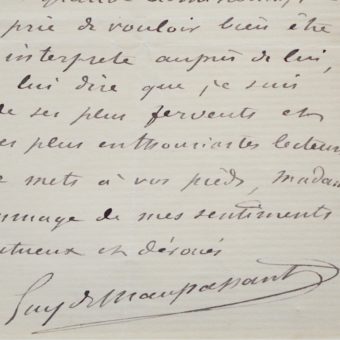 prie de vouloir bien être
interprete auprès de lui,
lui dire que je suis
de ses plus fervents et
es plus enthousiastes lecteur
mets à vos pieds, madam
mmage de mes sentiments
tueux et dévoués
Guy de Maupassant